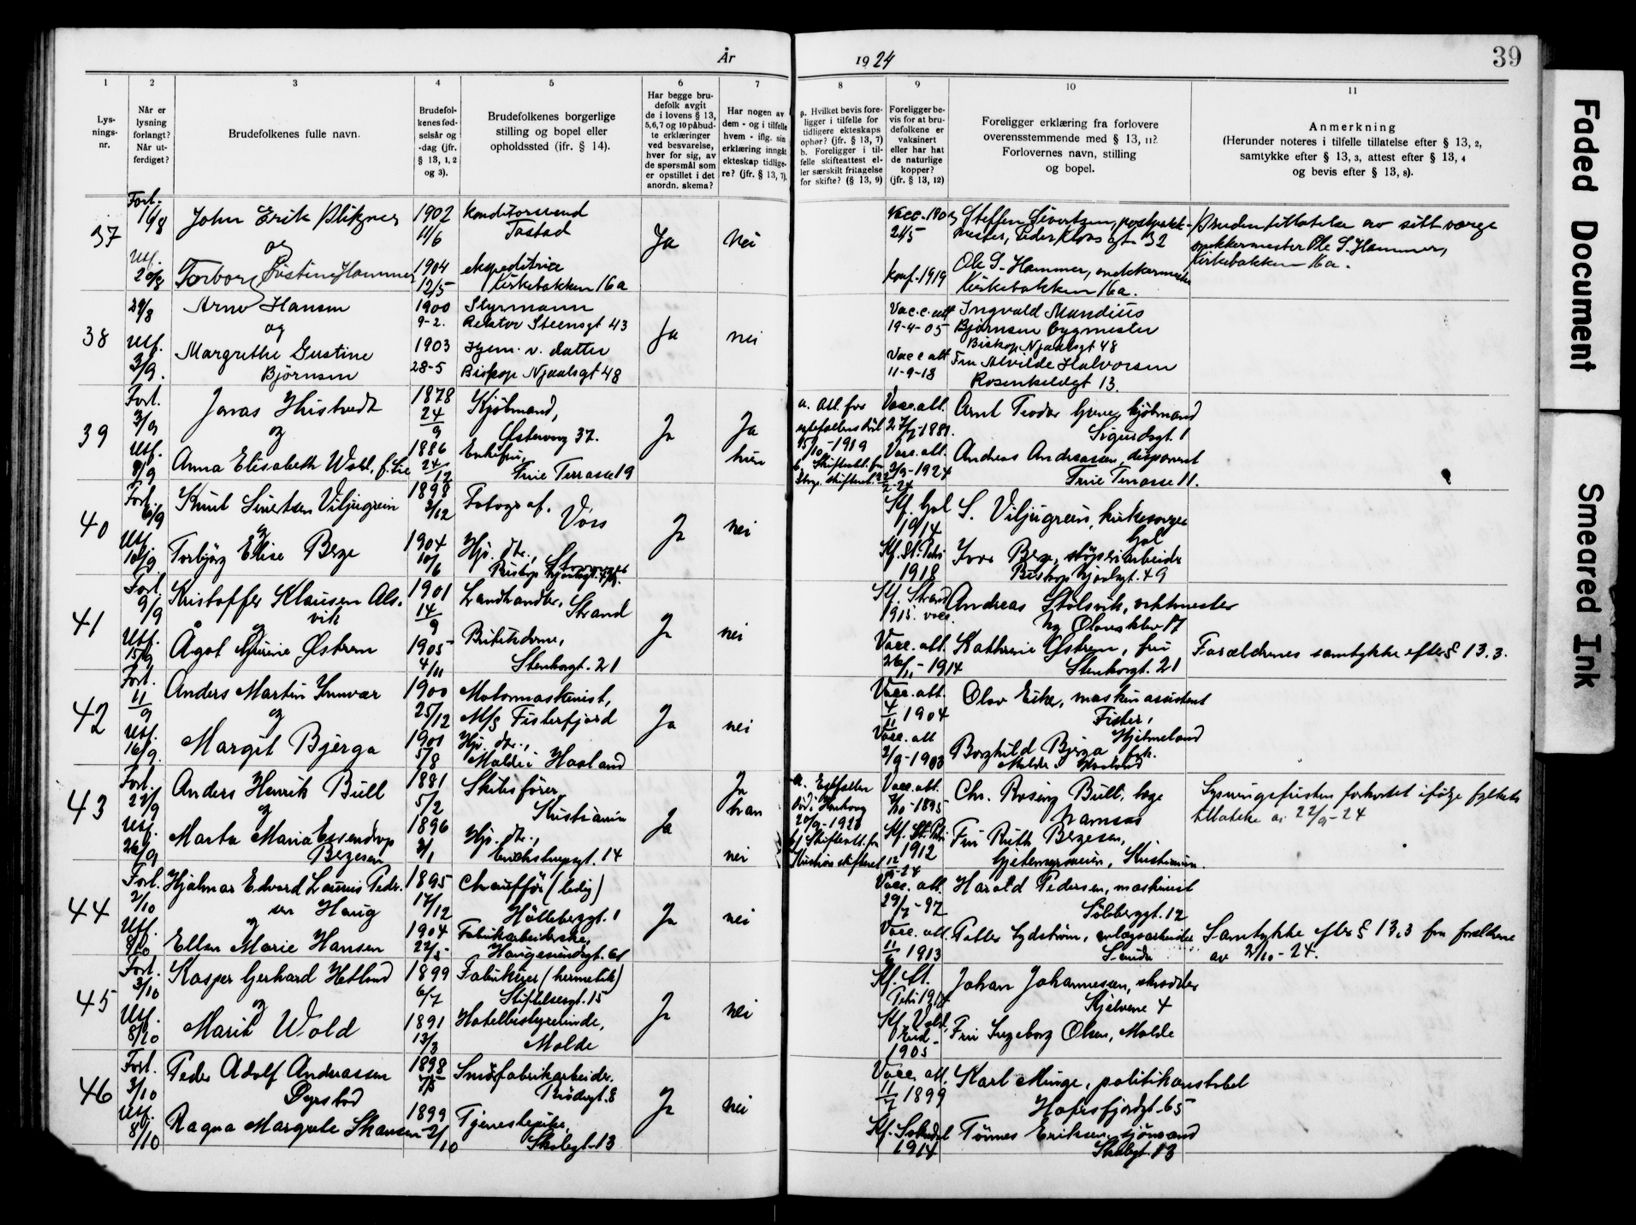 År
1924
39
1
2
3
4
5
6
7
8
9
10
11
Lys-
nings-
nr.
Når er
lysning
forlangt?
Når ut-
ferdiget?
Brudefolkenes fulle navn.
Brudefol-
kenes fød-
selsår og
-dag (jfr.
§ 13, 1, 2
og 3).
Brudefolkenes borgerlige
stilling og bopel eller
opholdssted (jfr. § 14).
Har begge bru-
defolk avgit
de i lovens § 13,
5,6,7 og 10 påbud-
te erklæringer
ved besvarelse,
hver for sig, av
de spørsmål som
er opstillet i det
anordn. skema?
Har nogen av
dem - og i tilfelle
hvem - iflg. sin
erklæring inngått
ekteskap tidlige-
re? (jfr. § 13, 7).
a. Hvilket bevis fore-
ligger i tilfelle for
tidligere ekteskaps
ophør? (jfr. § 13, 7)
b. Foreligger i til-
felle skifteattest el-
ler særskilt fritagelse
for skifte? (§ 13, 9)
Foreligger be-
vis for at bru-
defolkene er
vaksinert
eller har hat
de naturlige
kopper?
(jfr. § 13, 12)
Foreligger erklæring fra forlovere
overensstemmende med § 13, 11?
Forlovernes navn, stilling
og bopel.
Anmerkning
(Herunder noteres i tilfelle tillatelse efter § 13, 2,
samtykke efter § 13, 3, attest efter § 13, 4
og bevis efter § 13, 8).
37
Forl.
16/8
Utf.
20/8
John Erik
og
Torborg Kristine Hammer
1902
11/6
1904
12/5
Konditorsvend
Tastad
ekspeditrice
Kirkebakken 16a
Ja
Nei
Vacc. 1903
24/5
Konf. 1919
Steffen Sivertsen,
Peder Klows gt 32
Ole S. Hammer, snekkermester
Kirkebakken 16a.
Bruden tillatelse av sitt værge
snekkermester Ole S. Hammer,
Kirkebakken 16a.
38
29/8
Utf.
3/9.
Arne Hansen
og
Margrethe Gustine
Bjørnsen
1900
9-2.
1903
28-5
Styrmann
Rektor Steensgt 43
Hjem. v. datter
Biskop Njaalsgt 48
Ja
nei
Vacc. att
19-4-05
Vacc att
11-9-18
Ingvald Mundius
Bjørnsen bygmester
Biskop Njaalsgt 48
Fru Alvilde Halvorsen
Rosenkildegt 13.
39
Forl.
3/9
Utf.
9/9
Jonas Hustvedt
og
Anna Elisabeth Wold, f. Lie
1878
24/9
1886
24/12
Kjøbmand,
Østervåg 37.
Enkefru,
Frue Terrasse 19
Ja
Ja
hun
a. Att. fra
15/10-1919
b. Skifteatt. fra
Vacc. att.
27/7-1881.
Vacc. att.
3/9-1924
Arnt Teodor Grene, kjøbmand
Sigurdsgt. 1
Andreas Andreassen, disponent
Frue Terrasse 11.
40
Forl.
6/9
Utf.
10/9
Knut Sivertsen Viljugrein
og
Torbjørg Elise Berge
1898
3/12
1904
10/6
Fotograf.
Voss
Hj. dtr.,
Stavanger
Biskop Njaalsgt. 49.
Ja
nei
Kf. Gol
1914
Kf. St. Petri
1918
S. Viljugrein, kirkesanger
Gol
Ivar Berge, støperiarbeider
Biskop Njaalsgt. 49
41
Forl.
9/9
Utf.
15/9
Kristoffer Klausen Als-
vik
og
Ågot Gurine Østrem
1901
14/9
1905
4/11
Landhandler,
Strand
Butikdame,
Stenbergt. 21
Ja
nei
Kf. Strand
1915. vacc.
Vacc. att.
26/11-1914
Andreas Stolsvik, vektmester
Ny Olavskleiv 17
Kathrine Østrem, fru
Stenbergt. 21
Forældrenes samtykke efter § 13.3.
42
Forl.
11/9
Utf.
16/9.
Anders Martin Ymvar
og
Margit Bjerga
1900
25/12
1901
5/8
Motormaskinist,
M/S Fisterfjord
Hj. dtr.,
Malde i Haaland
Ja
nei
Vacc. att.
4/11 1904
Vacc. att
2/9-1903
Olav Eike, maskinassistent
Fister,
Hjelmeland
Borghild Bjerga frk.
Malde i Haaland
43
Forl.
22/9
Utf.
26/9
Anders Henrik Bull
og
Marta Maria Essendrop
Bergesen
1881
5/2
1896
2/1
Skibsfører,
Kristiania
Hj. dtr.,
Erichstrupsgt. 14
Ja
Ja
han
nei
a. Ektefellen
død i
20/9-1920
b) Skifteatt. fra
Kristiania skifteret
Vacc. att.
7/10-1895
Kf. St. Petri
1912
Chr. Rosing Bull, læge
Framnæs
Fru Ruth Bergesen,
Kristiania.
Lysningsfristen forkortet ifølge fylkets
tillatelse av 22/9-24
44
Forl.
2/10
Utf.
8/10
Hjalmar Edvard Laurus Peder-
sen Haug
og
Ellen Marie Hansen
1895
17/12
1904
22/5
Chauffør (ledig)
Hølleberggt. 1
Fabrikarbeiderske,
Haugesundsgt. 61
Ja
nei
Vacc. att.
29/7-97
Vacc. att.
11/6 1913
Harald Pedersen, maskinist
Sølvberggt. 12
Petter Lydstrøm, anlægsarbeider
Sauda
Samtykke efter § 13.3 fra forældrene
av 2/10-24.
45
Forl.
3/10
Utf.
8/10
Kasper Gerhard Hetland
og
Marit Wold
1899
6/7
1891
13/3
Fabrikeier (hermetik)
Stiftelsesgt. 15
Hotelbestyrerinde,
Molde
Ja
nei
Kf. St.
Petri 1914
Kf. Vold
1905
Johan Johannessen, skrædder
Kjelvene 4
Fru Ingeborg Olsen, Molde
46
Forl.
3/10
Utf.
8/10
Peder Adolf Andreassen
Dyrstad
Ragna Margrete Skansen
1898
1899
2/10
Smørfabrikarbeider.
Brødregt. 8
Tjenestepike,
Skolegt. 13
Ja
nei
Vacc. att.
11/7 1899
Kf. Sokndal
1914
Karl Minge, politikonstabel
Hafrsfjordgt. 65
Tønnes Eriksen, sjømand
Skolegt. 13
Faded Document
Smeared Ink